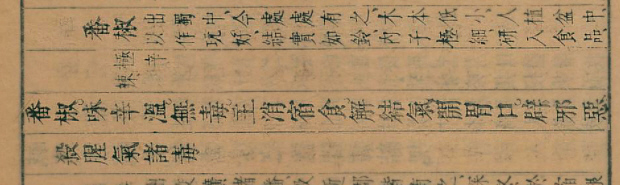 番椒
出蜀中今處處有之木本低小人植盆中
以作玩好結實如鈴內子極細研入食品
極辛
辣
番椒味辛溫無毒主消宿食解結氣開胃口辟邪惡
殺腥氣諸毒